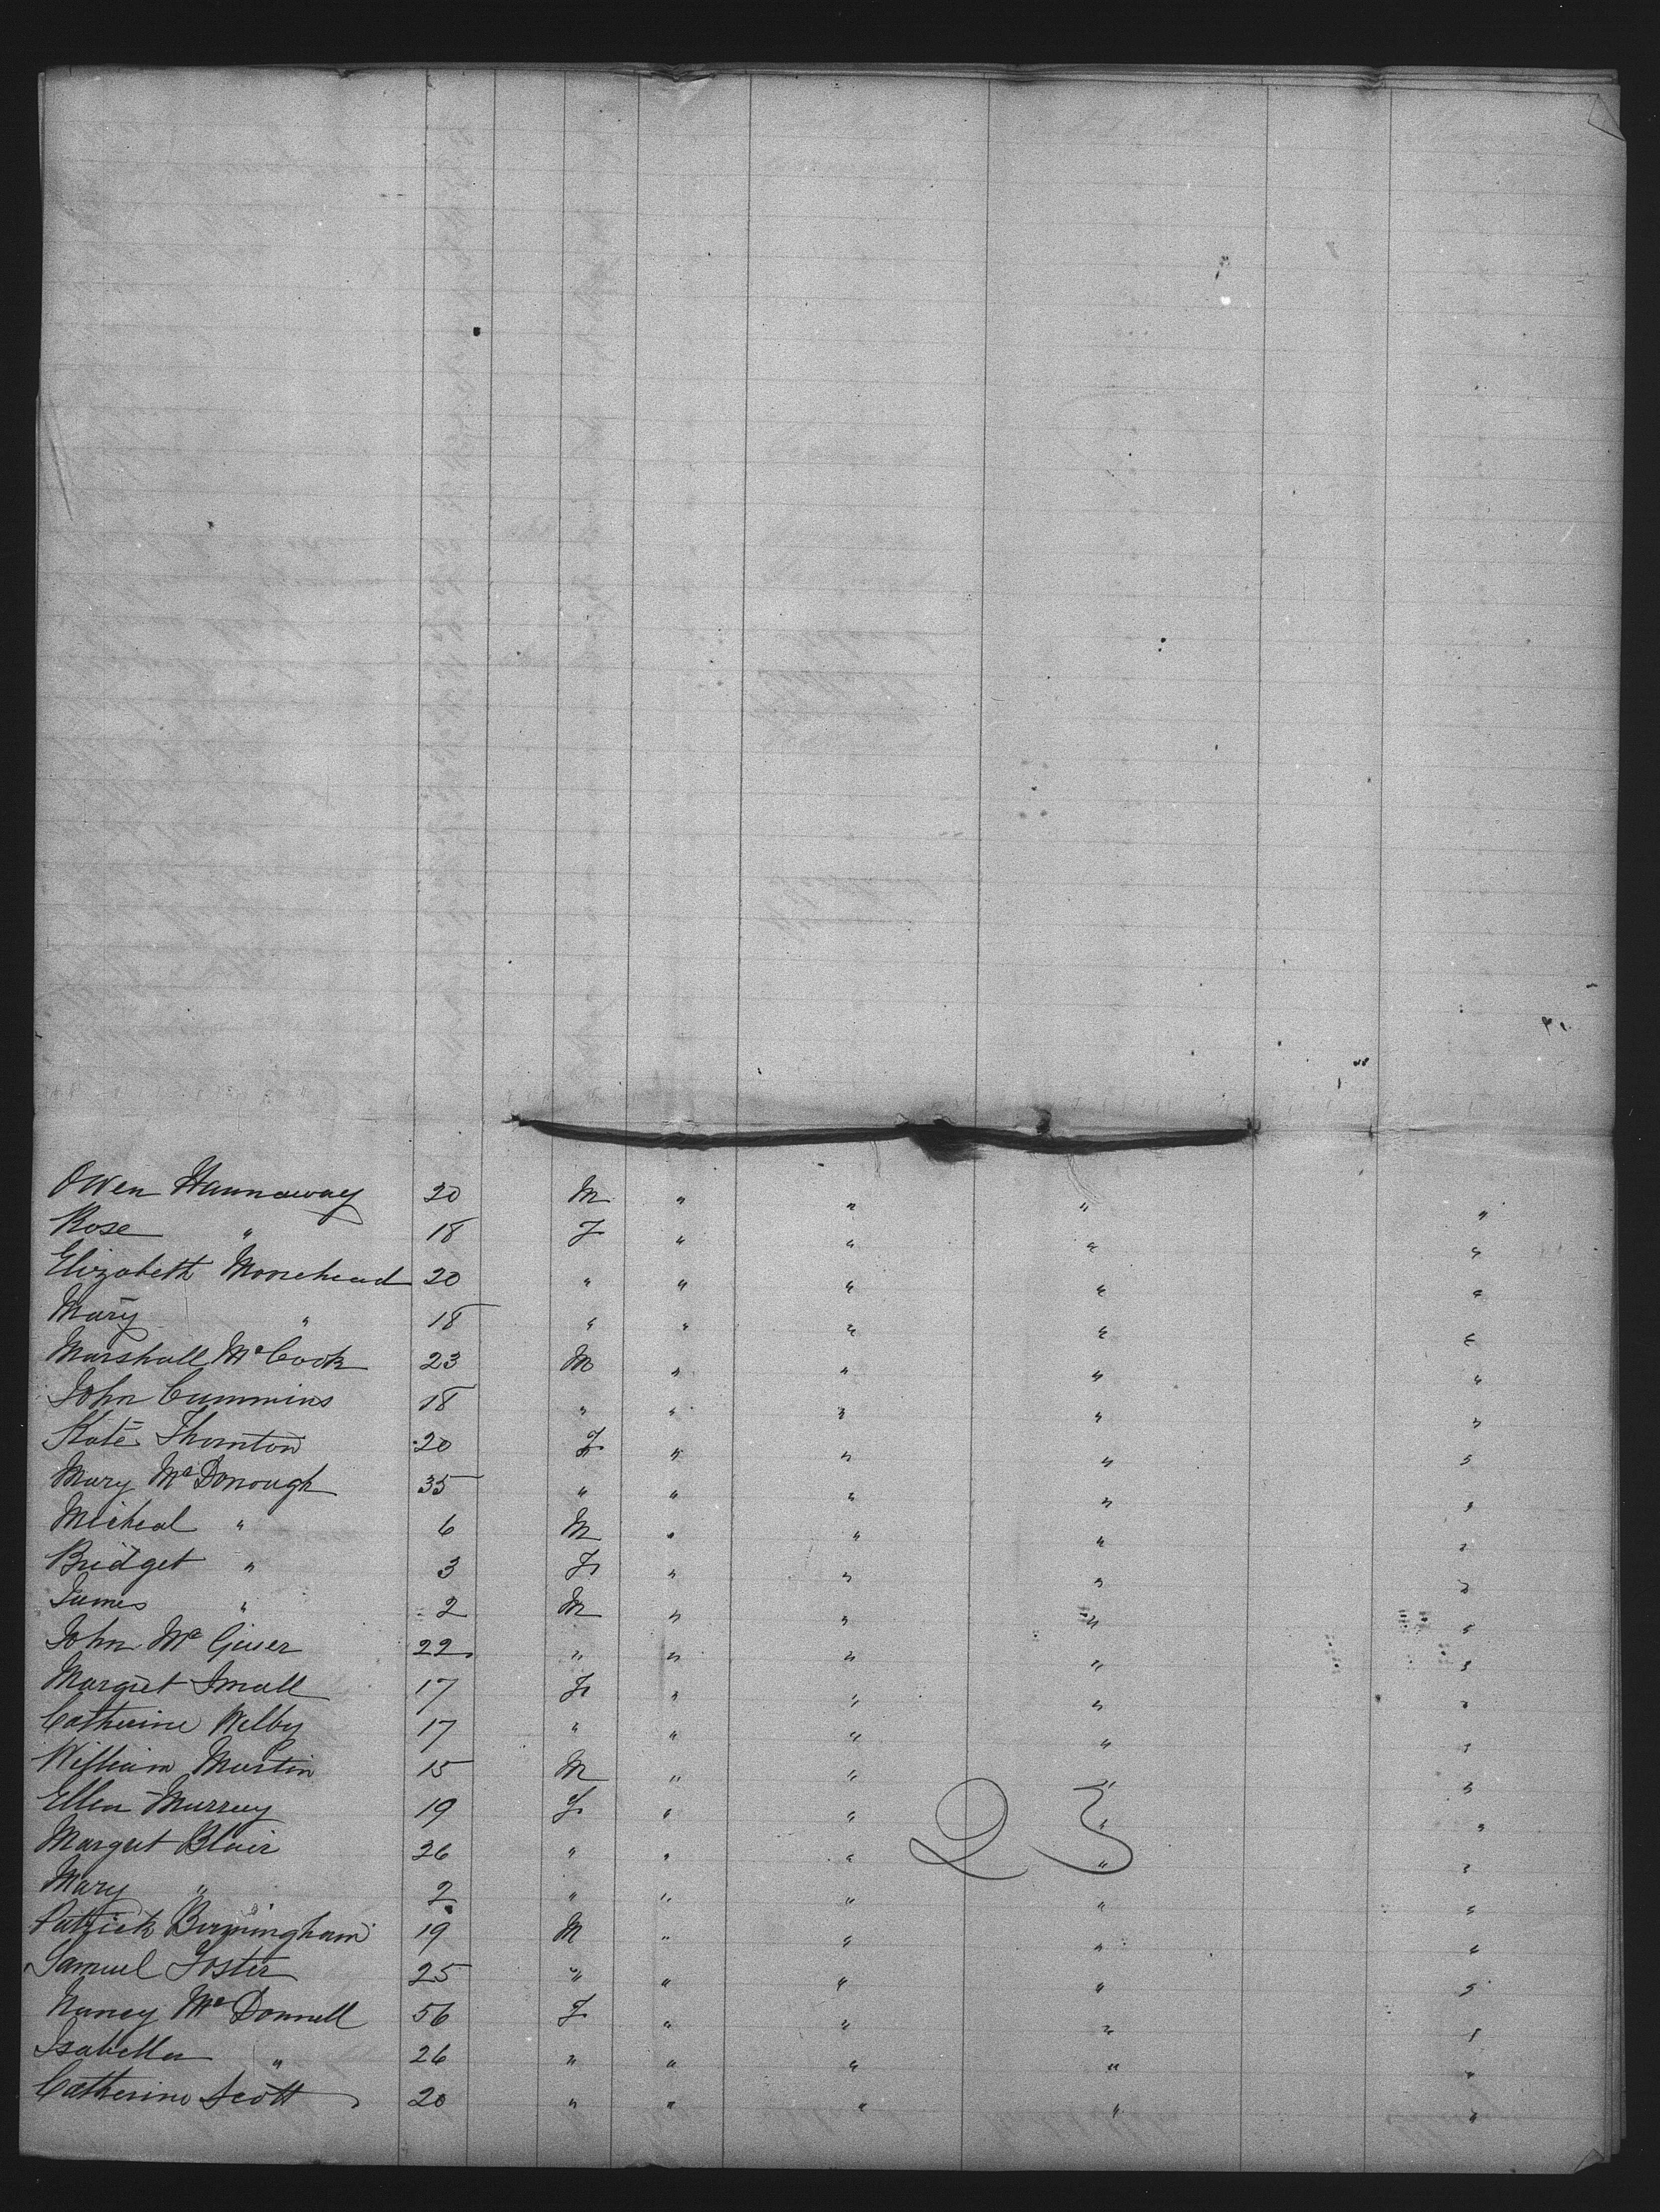 Owen Hannaway 20 M " " " "
Rose " 18 F " " " "
Elizabeth Moorehead 20 " " " " "
Mary " 18 " " " " "
Marshall McCook 23 M " " " "
John Cummins 18 " " " " "
Kate Thornton 20 F " " " "
Mary McDonough 35 " " " " "
Micheal " 6 M " " " "
Bridget " 3 F " " " "
James " 2 M " " " "
John McGiver 22 " " " " "
Margret Small 17 F " " " "
Catherine Welby 17 " " " " "
William Martin 15 M " " " "
Ellen Murray 19 F " " " "
23
Margret Blair 26 " " " " "
Mary " 2 " " " " "
Patrick Birmingham 19 M " " " "
Samuel Foster 25 " " " " "
Nancy McDonnell 56 F " " " "
Isabella " 26 " " " " "
Catherine Scott 20 " " " " "